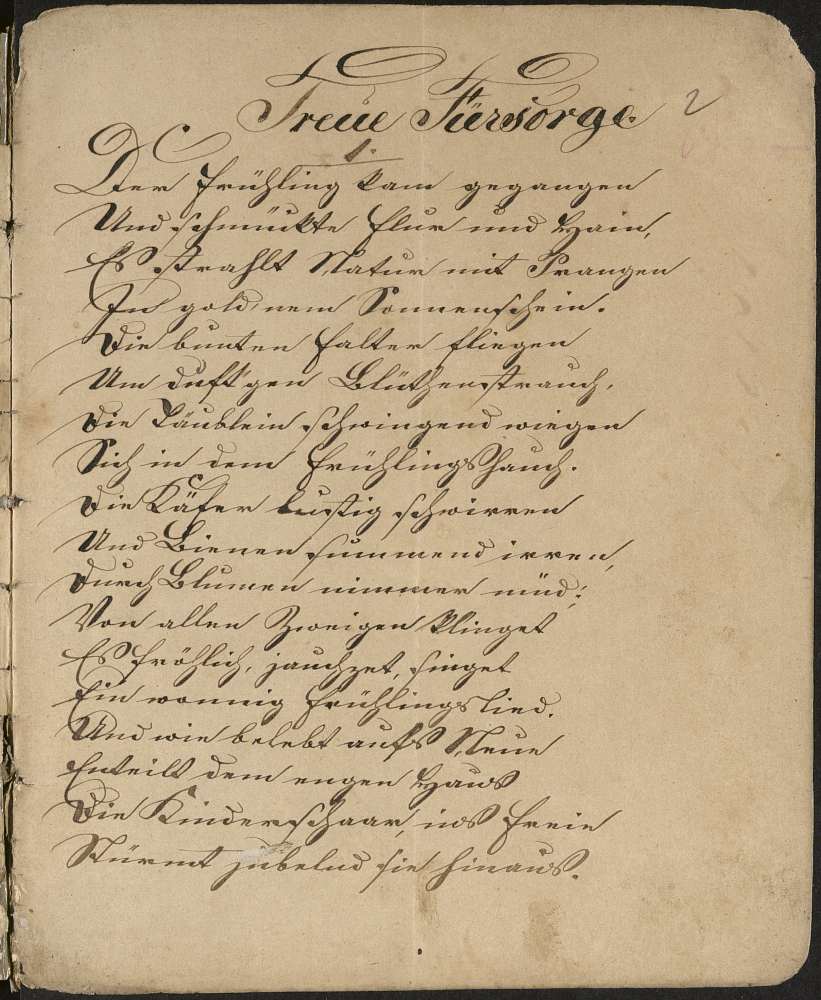 Treue Fürsorge.
2
1.
Der Frühling kam gegangen
Und schmückte Flur und Hain,
Es strahlt Natur mit Prangen
In gold'nem Sonnenschein.
Die bunten Falter fliegen
Um duft'gen Blüthenstrauch,
Die Täublein schwingend wiegen
Sich in dem Frühlingshauch.
Die Käfer lustig schwirren
Und Bienen summend irren,
Durch Blumen nimmer müd';
Von allen Zweigen klinget
Es fröhlich, jauchzet, singet
Ein wonnig Frühlingslied.
Und wie belebt aufs Neue
Enteilt dem engen Haus
Die Kinderschaar, ins Freie
Stürmt jubelnd sie hinaus.